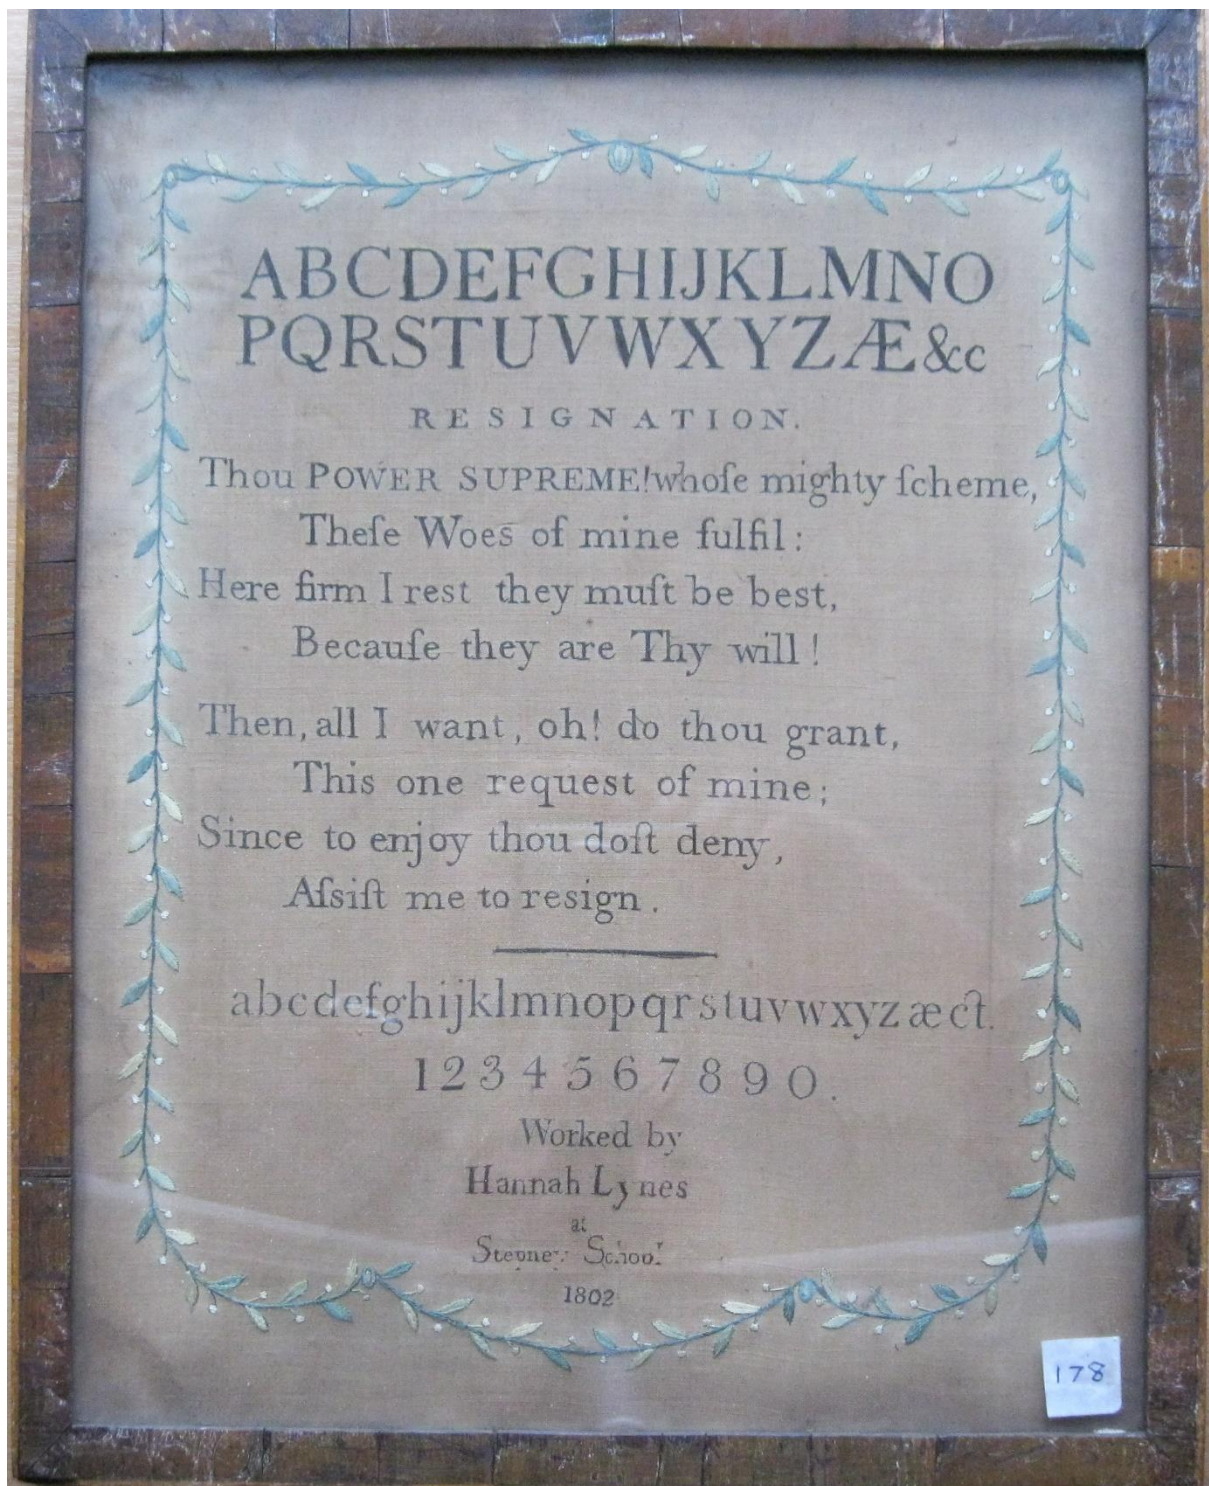 ABCDEFGHIJKLMNO
PQRSTUVWXYZÆ&c
RESIGNATION.
Thou POWER SUPREME! whoſe mighty ſcheme,
Theſe Woes of mine fulfil:
Here firm I rest they muſt be best,
Becauſe they are Thy will!
Then, all I want, oh! do thou grant,
This one request of mine;
Since to enjoy thou doſt deny,
Aſsiſt me to resign.
abcdefghijklmnopqrstuvwxyzæct.
1234567890.
Worked by
Hannah Lynes
at
Stepney School
1802
178